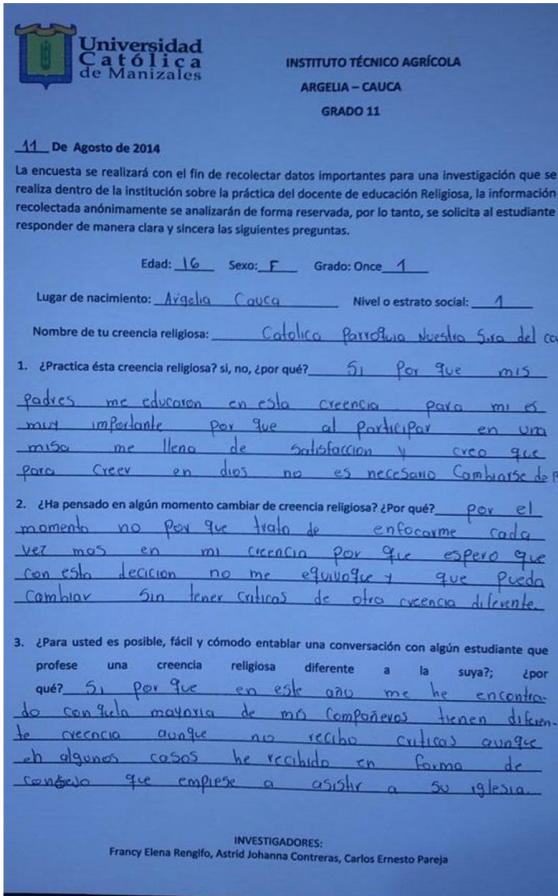 Universidad
Católica
de Manizales
INSTITUTO TÉCNICO AGRÍCOLA
ARGELIA – CAUCA
GRADO 11
11 De Agosto de 2014
La encuesta se realizará con el fin de recolectar datos importantes para una investigación que se
realiza dentro de la institución sobre la práctica del docente de educación Religiosa, la información
recolectada anónimamente se analizarán de forma reservada, por lo tanto, se solicita al estudiante
responder de manera clara y sincera las siguientes preguntas.
Edad: 16 Sexo: F Grado: Once 1
Lugar de nacimiento: Argelia Cauca Nivel o estrato social: 1
Nombre de tu creencia religiosa: Catolica Parroquia Nuestra Sra del
1. ¿Practica ésta creencia religiosa? si, no, ¿por qué? Si Por que mis
padres me educaron en esta creencia para mi es
muy importante por que al participar en una
misa me lleno de satisfaccion y creo que
para Creer en dios no es necesario Cambiarse de
2. ¿Ha pensado en algún momento cambiar de creencia religiosa? ¿Por qué? por el
momento no por que trato de enfocarme cada
vez mas en mi creencia por que espero que
con esta decicion no me equivoque y que pueda
cambiar sin tener criticas de otra creencia diferente
3. ¿Para usted es posible, fácil y cómodo entablar una conversación con algún estudiante que
profese una creencia religiosa diferente a la suya?; ¿por
qué? Si por que en este año me he encontra-
do con qula mayoria de mis compañeros tienen diferen-
te creencia aunque no recibo criticas aunque
eh algunos casos he recibido en forma de
consejo que empiese a asistir a su iglesia.
INVESTIGADORES:
Francy Elena Rengifo, Astrid Johanna Contreras, Carlos Ernesto Pareja